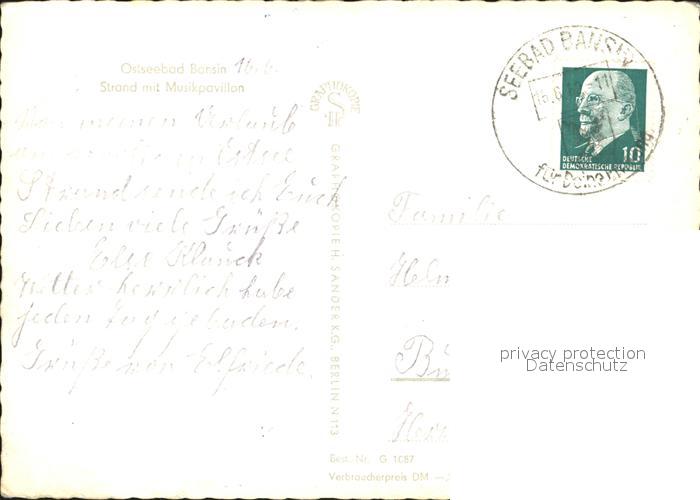 Ostseebad Bansin 16.6.
Strand mit Musikpavillon
meinen Verlaub
Strand sende ich Euch
Lieben viele Grüße
Else Klauck
Wetter herrlich habe
jeden Tag gebaden.
Grüße von Elfriede.
GRAPHOKOPIE
GRAPHOKOPIE H. SANDER K.G., BERLIN N 113
SEEBAD BANSIN
für Deine
10
DEUTSCHE
DEMOKRATISCHE REPUBLIK
Familie
Helm
Bü
privacy protection
Datenschutz
Best. Nr. G 1087
Verbraucherpreis DM